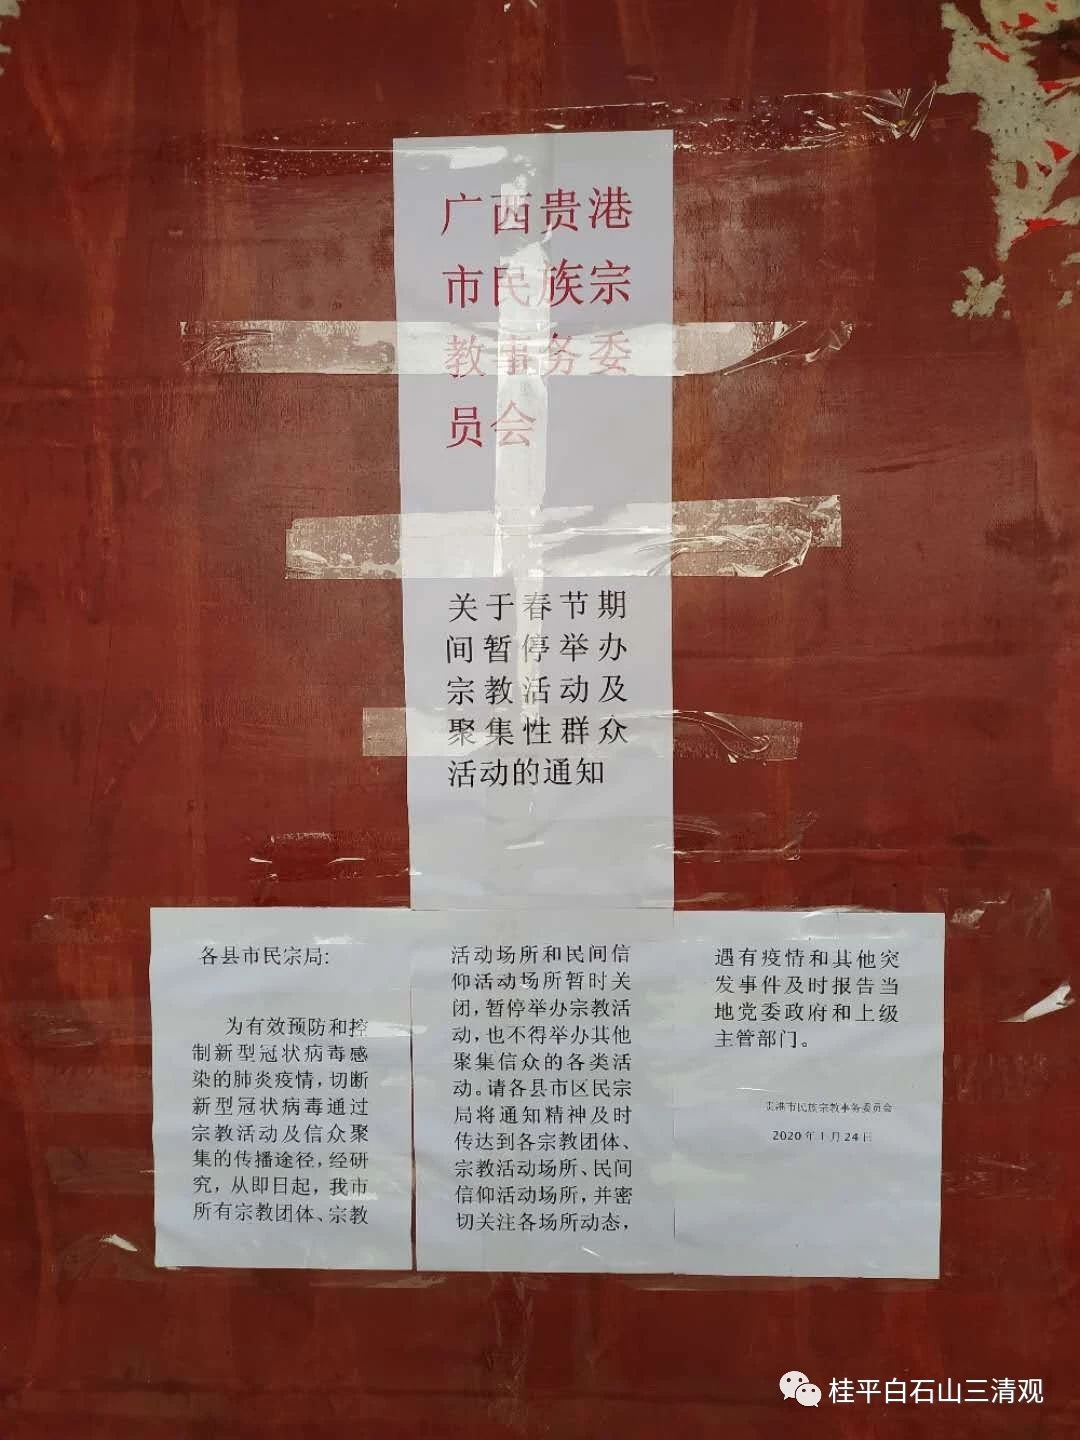 广西贵港
市民族宗
教事务委
员会
关于春节期
间暂停举办
宗教活动及
聚集性群众
活动的通知
各县市民宗局:
为有效预防和控
制新型冠状病毒感
染的肺炎疫情,切断
新型冠状病毒通过
宗教活动及信众聚
集的传播途径,经研
究,从即日起,我市
所有宗教团体、宗教
活动场所和民间信
仰活动场所暂时关
闭,暂停举办宗教活
动,也不得举办其他
聚集信众的各类活
动。请各县市区民宗
局将通知精神及时
传达到各宗教团体、
宗教活动场所、民间
信仰活动场所,并密
切关注各场所动态,
遇有疫情和其他突
发事件及时报告当
地党委政府和上级
主管部门。
贵港市民族宗教事务委员会
2020年1月24日
桂平白石山三清观